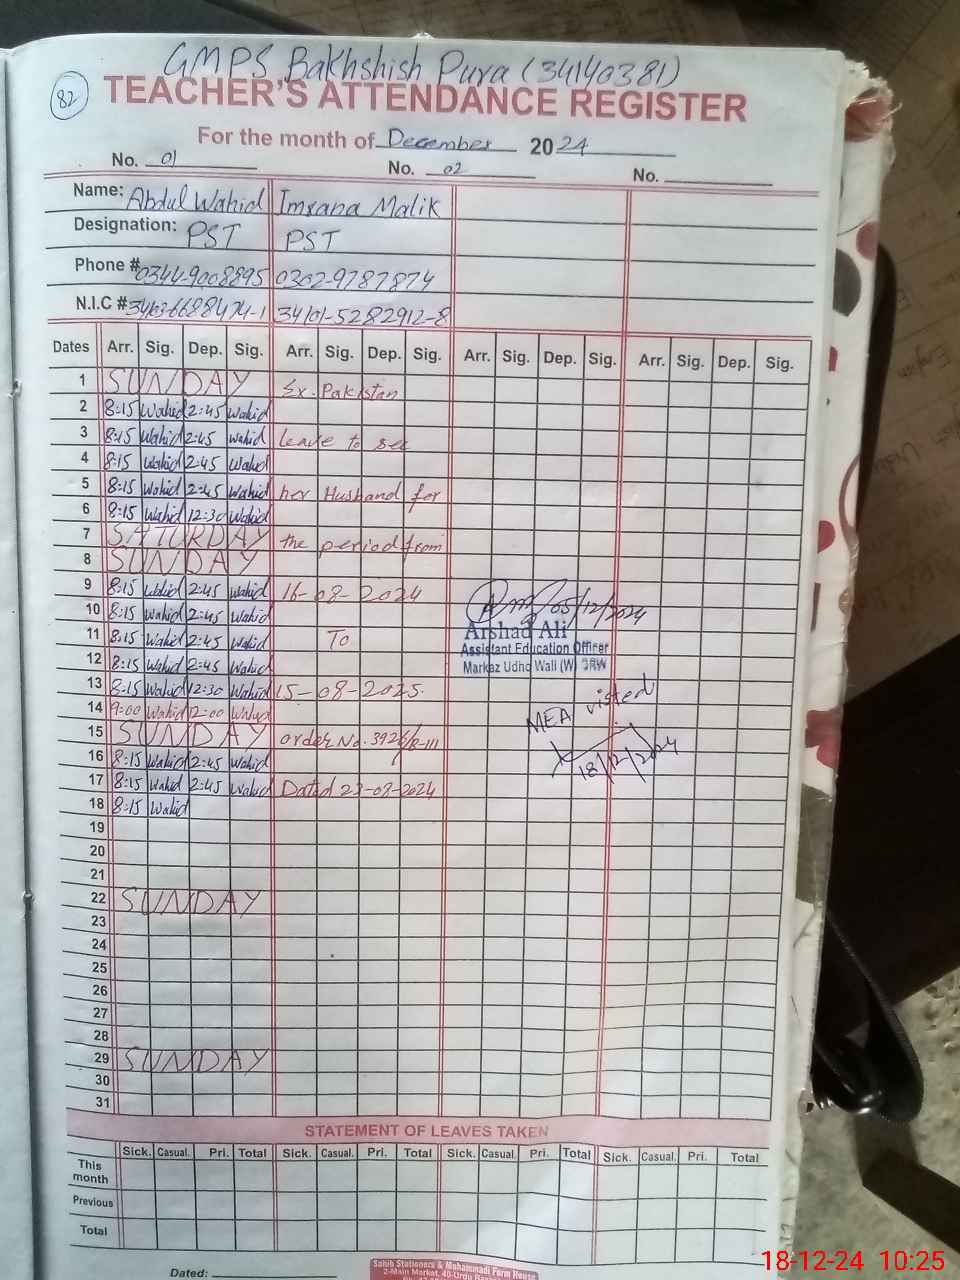 GMPS Bakhshish Pura (34140381)
82
TEACHER'S ATTENDANCE REGISTER
For the month of December 2024
No. 01 No. 02 No.
Name: Abdul Wahid Imrana Malik
Designation: PST PST
Phone # 0344-9008895 0302-9787874
N.I.C # 34103-6688474-1 34101-5282912-8
Dates Arr. Sig. Dep. Sig. Arr. Sig. Dep. Sig. Arr. Sig. Dep. Sig. Arr. Sig. Dep. Sig.
1 SUNDAY Ex. Pakistan
2 8:15 Wahid 2:45 Wahid
3 8:15 Wahid 2:45 Wahid Leave to see
4 8:15 Wahid 2:45 Wahid
5 8:15 Wahid 2:45 Wahid her Husband for
6 8:15 Wahid 12:30 Wahid
7 SATURDAY the period from
8 SUNDAY
9 8:15 Wahid 2:45 Wahid 16-08-2024
10 8:15 Wahid 2:45 Wahid 05/12/2024
11 8:15 Wahid 2:45 Wahid To Arshad Ali
Assistant Education Officer
12 8:15 Wahid 2:45 Wahid Markaz Udho Wali (W) GRW
13 8:15 Wahid 12:30 Wahid 15-08-2025.
14 9:00 Wahid 12:00 Wahid MEA visted
15 SUNDAY order No. 3926/R-III
16 8:15 Wahid 2:45 Wahid 18/12/2024
17 8:15 Wahid 2:45 Wahid Dated 23-08-2024
18 8:15 Wahid
19
20
21
22 SUNDAY
23
24
25
26
27
28
29 SUNDAY
30
31
STATEMENT OF LEAVES TAKEN
Sick. Casual. Pri. Total Sick. Casual. Pri. Total Sick. Casual. Pri. Total Sick. Casual. Pri. Total
This month
Previous
Total
Dated:
Salub Stationers & Mohammadi Form House
2-Main Market, 40-Urdu
18-12-24 10:25